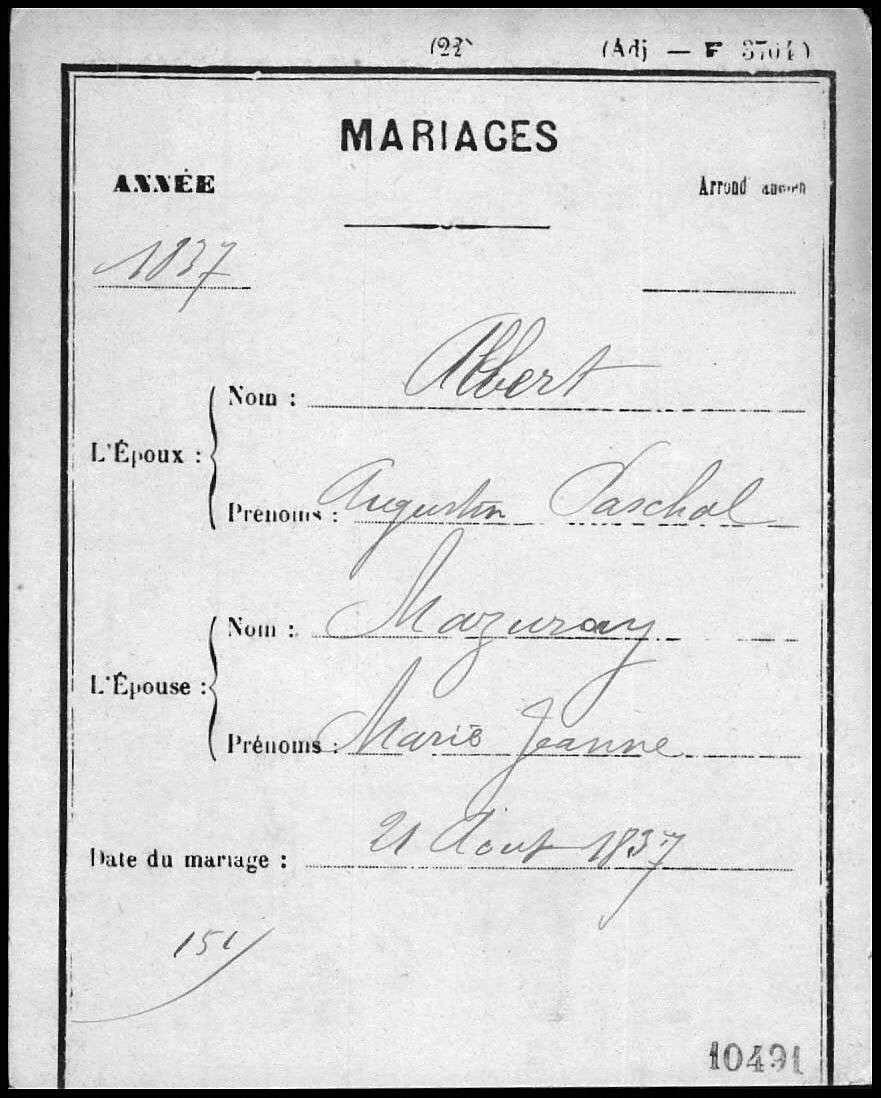 (21) (Adj — F 3704)
MARIAGES
ANNÉE Arrond ancien
1837
Nom : Albert
L'Époux :
Prénoms : Augustin Paschal
Nom : Mazuray
L'Épouse :
Prénoms : Marie Jeanne
Date du mariage : 21 Aout 1837
151
10491